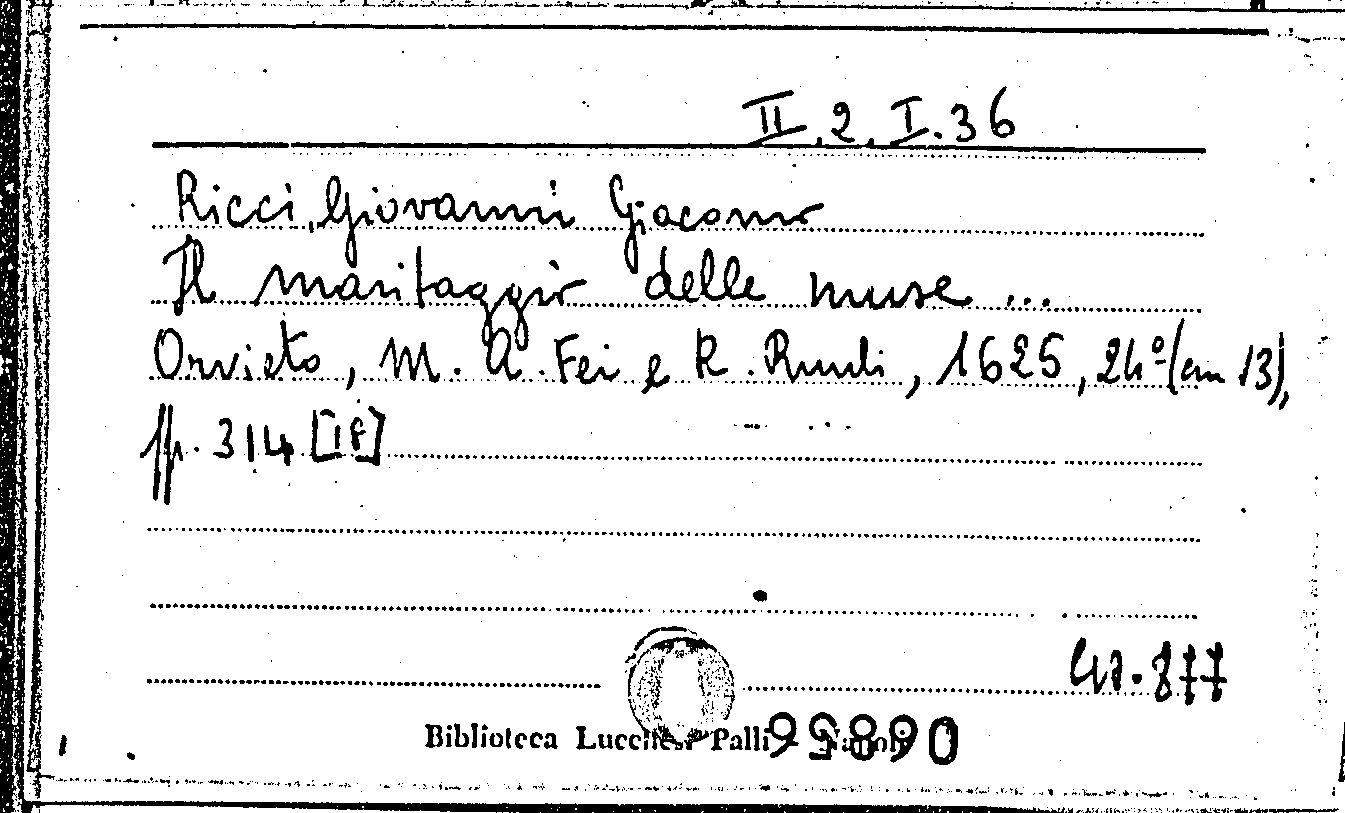 II.2.I.36
Ricci, Giovanni Giacomo
Il maritaggio delle muse ...
Orvieto, M. A. Fei e R. Ruuli, 1625, 24º (cm 13),
pp. 314 [18]
877
Biblioteca Lucchesi Palli - Napoli